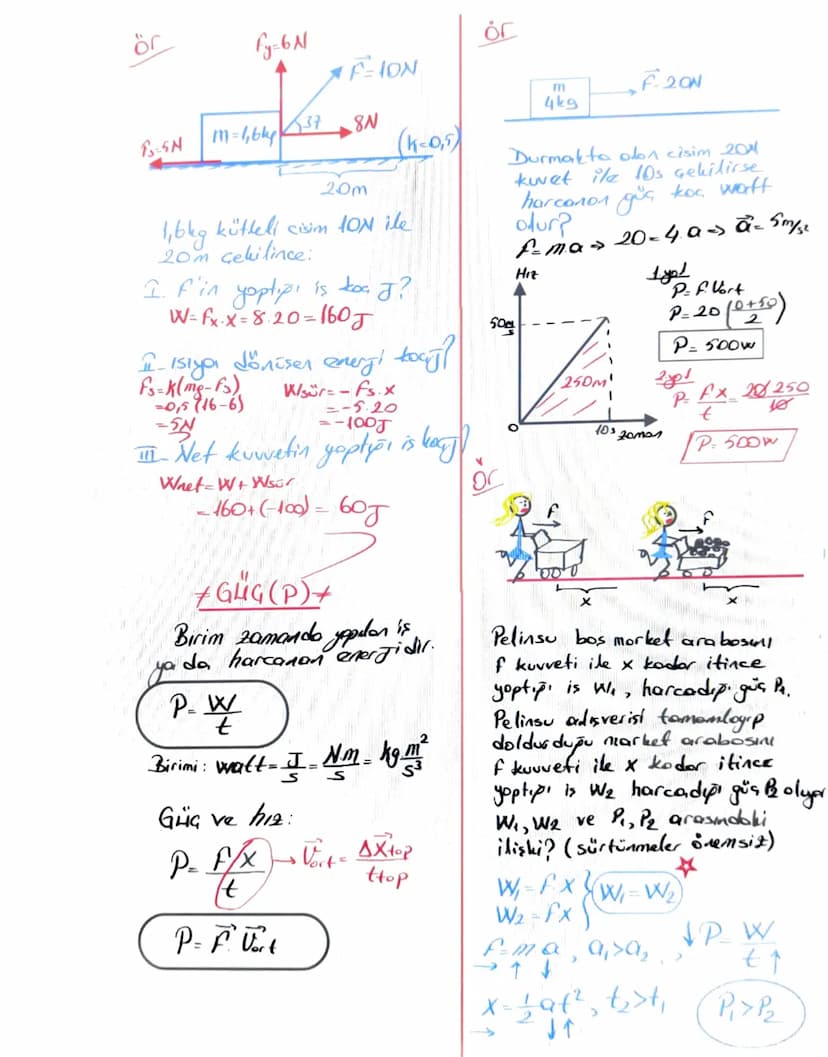 ör
Fy=6N
F=10N
m=1,6kg
37
8N
fs=5N
(k=0,5)
20m
1,6kg kütleli cisim 10N ile
20m çekilince:
I. F'in yaptığı iş kaç J?
W=Fx.x=8.20=160J
II- Isıya dönüşen energi kaç J?
Fs=k(mg-Fs)
=0,5(16-6)
=5N
Wsür=-Fs.x
=-5.20
=-100J
III- Net kuvvetin yaptığı iş kaç J?
Wnet=W+Wsür
=160+(-100)=60J
GÜÇ(P)
Birim zamanda yapılan iş
ya da harcanan energidir.
P=W/t
Birimi: watt=J/s=Nm/s=kg m²/s³
Güç ve hız:
P=F/x/t → Vort=ΔXtop/ttop
P=F Vort
ör
m
4kg
F=20N
Durmakta olan cisim 20N
kuvet ile 10s çekilirse
harcanan güç kaç watt
olur?
F=ma⇒20=4.a⇒a=5m/s²
Hız
50m/s
250m
0
10s zaman
1yol
P=FVort
P=20(0+50/2)
P=500W
2yol
P=Fx/t=20/250/10
P=500W
Ör
F
F
x
x
Pelinsu boş market arabasını
F kuvveti ile x kadar itince
yaptığı iş W₁, harcadığı güç P₁.
Pelinsu alışverişi tamamlayıp
doldurduğu market arabasını
F kuvveti ile x kadar itince
yaptığı iş W₂ harcadığı güç P₂ oluyor
W₁,W₂ ve P₁,P₂ arasındaki
ilişki? (sürtünmeler önemsiz)
W₁=F.X
W₂=Fx
W₁=W₂
F=m a, a₁>a₂, ↓P=W/t↑
→ ↑ ↓
x=1/2at², t₂>t₁
→ ↓↑
P₁>P₂